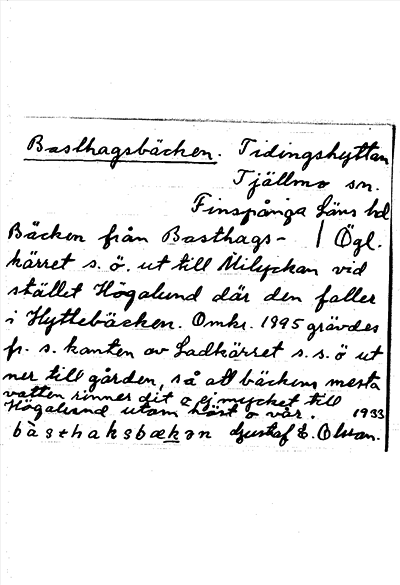 Basthagsbäcken. Tidingshyttan
Tjällmo sn.
Finspånga Läns hd
Bäcken från Basthags- / Ögl.
kärret s. ö. ut till Milyckan vid
stället Högalund där den faller
i Hyttebäcken. Omkr. 1895 grävdes
fr. s. kanten av Ladkärret s. s. ö ut
ner till gården, så att bäckens mesta
vatten rinner dit o ej mycket till
Högalund utom höst o vår. 1933
Gustaf E. Olsson.